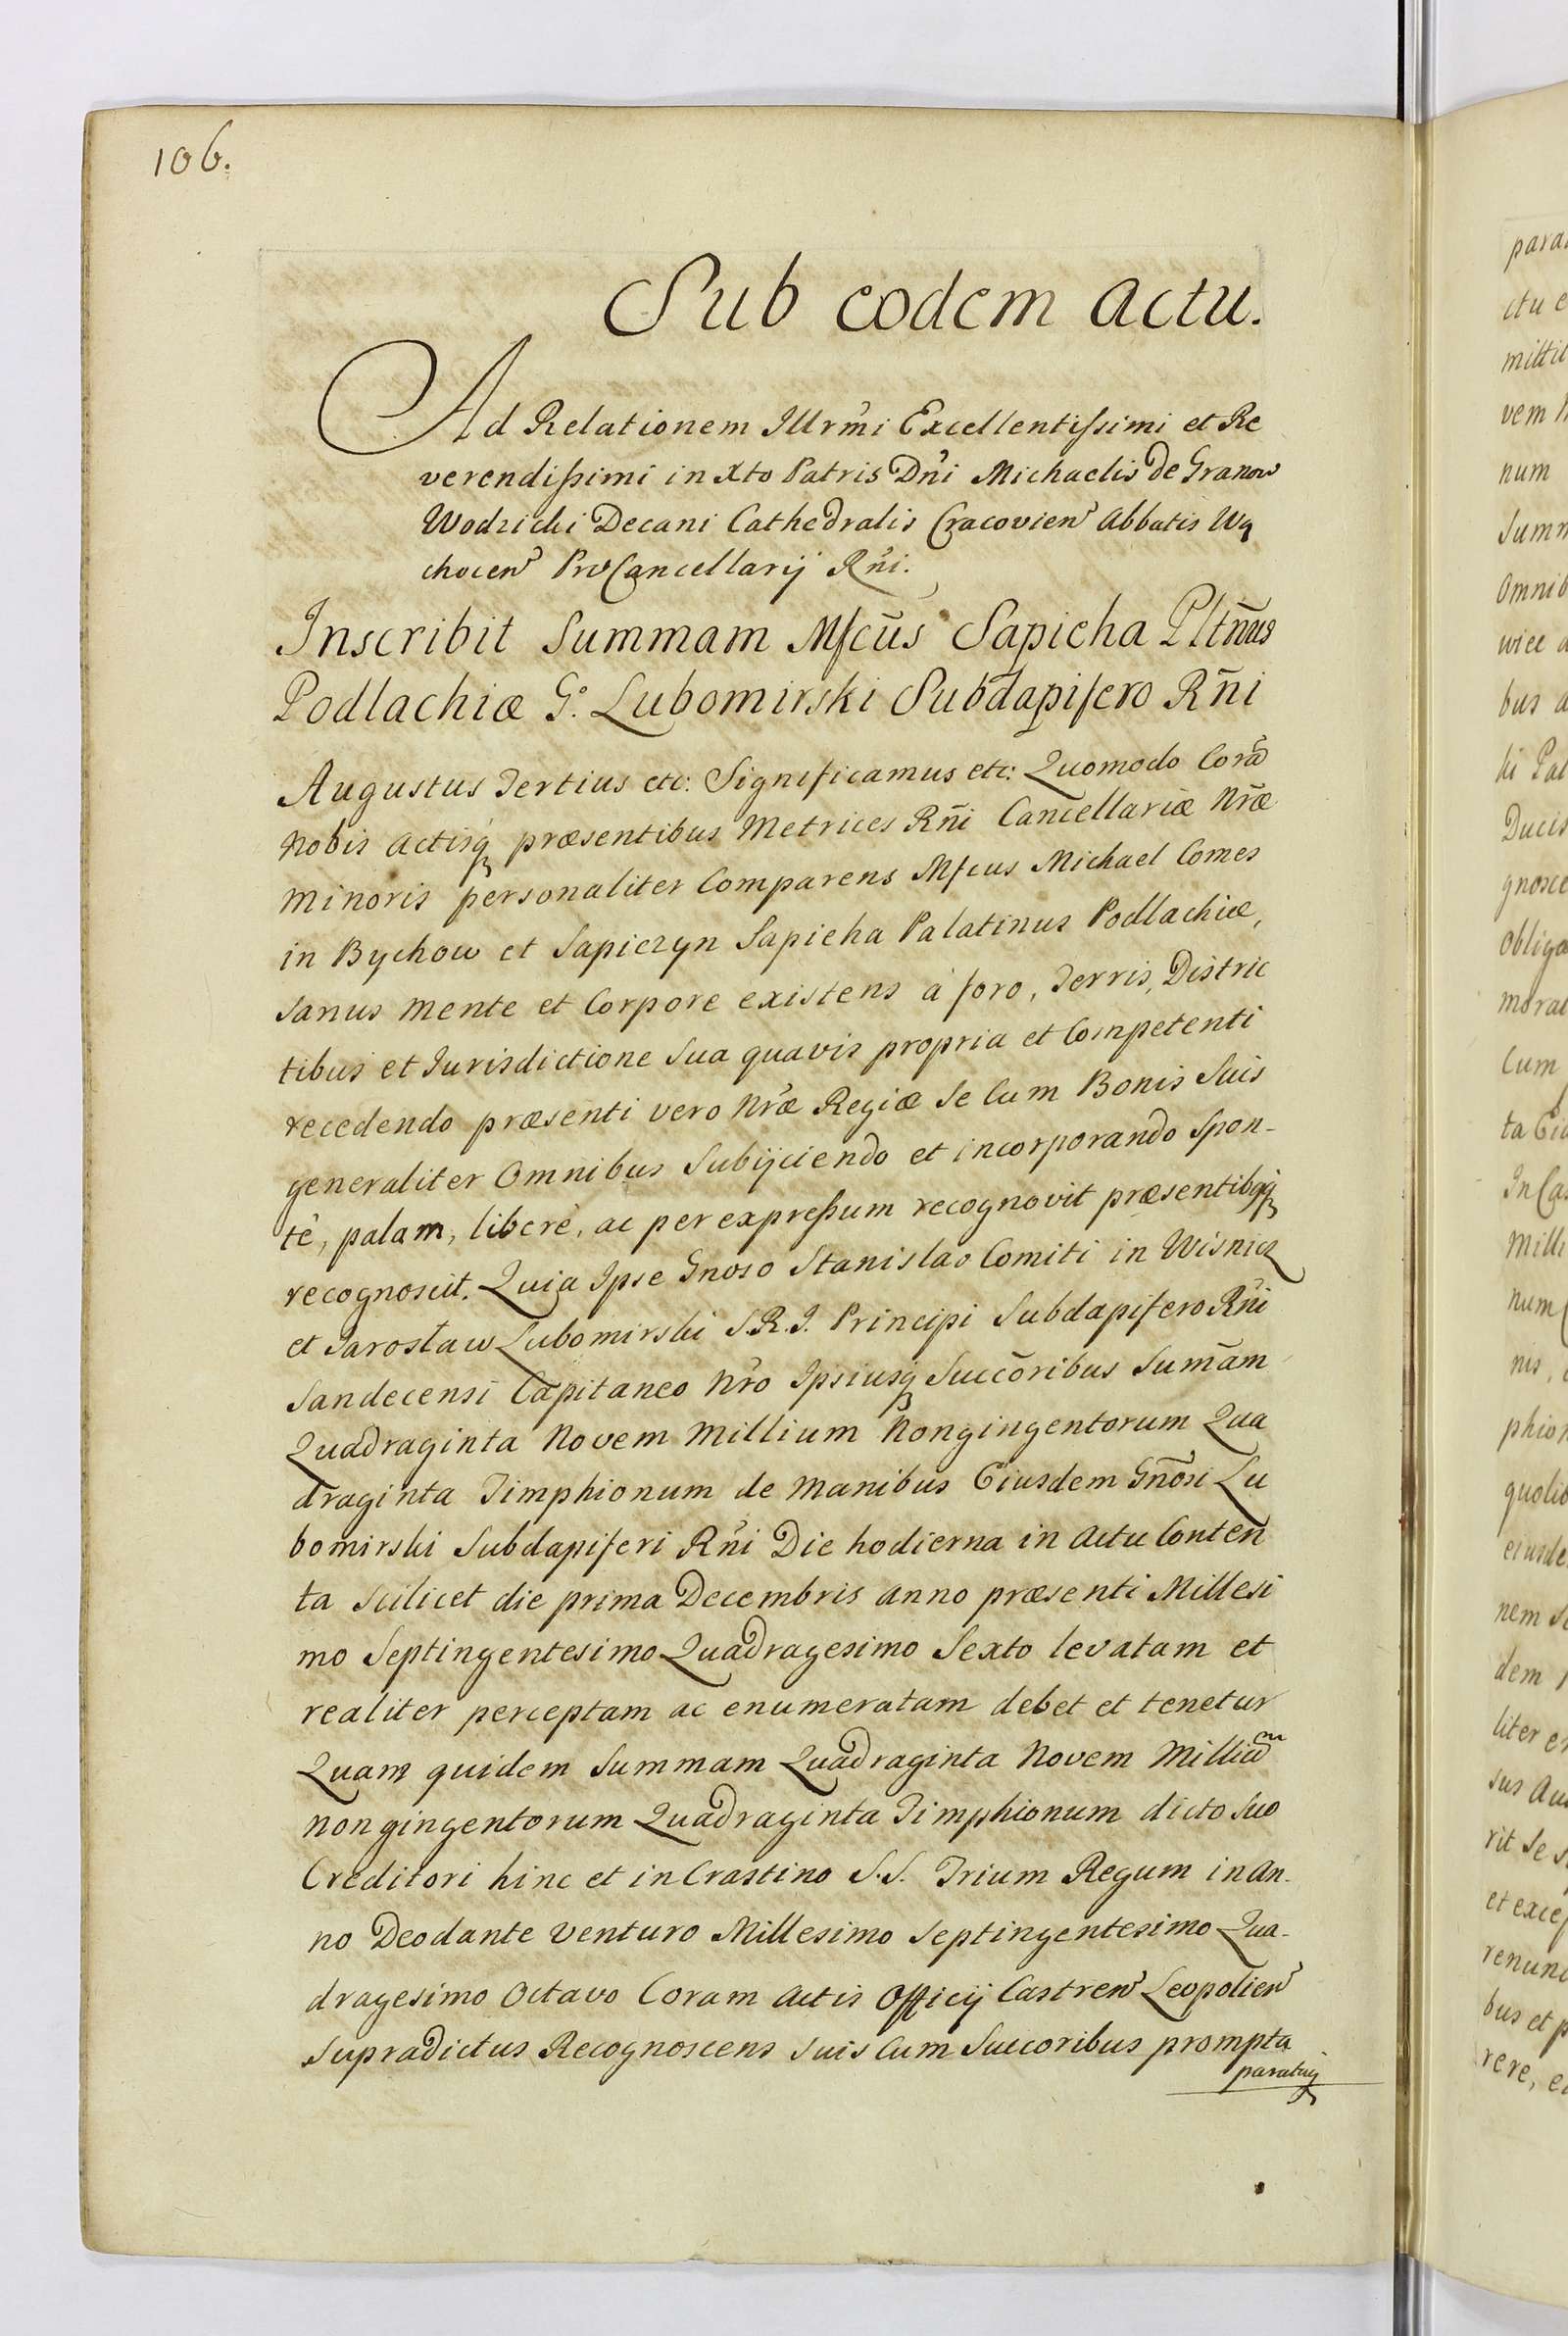 106.
Sub eodem actu.
Ad Relationem Illrm̃i Excellentissimi et Re
verendissimi in Xto Patris Dñi Michaelis de Granow
Wodzicki Decani Cathedralis Cracovien̄ Abbatis Wą
chocen̄ ProCancellarij Rñi.
Inscribit Summam Mfcūs Sapieha Pltñus
Podlachiæ G.º Lubomirski Subdapifero Rñi
Augustus Tertius etc: Significamus etc: Quomodo Corā
Nobis actisq́ præsentibus Metrices Rñi Cancellariæ Nrǣ
Minoris personaliter Comparens Mfcus Michael Comes
in Bychow et Sapiezyn Sapieha Palatinus Podlachiæ,
Sanus Mente et Corpore existens à foro, Terris, Distric
tibus et Jurisdictione Sua quavis propria et Competenti
recedendo præsenti vero Nrǣ Regiæ Se Cum Bonis Suis
generaliter Omnibus Subijciendo et incorporando Spon-
tè, palam, liberè, ac per expressum recognovit præsentibq́q
recognoscit. Quia Ipse Gnoso Stanislao Comiti in Wisnicz
et Jarosław Lubomirski S.R.I. Principi Subdapifero Rñi
Sandecensi Capitaneo Nr̃o Ipsiusq́ Succōribus Sum̄am
Quadraginta Novem Millium Nongingentorum Qua
draginta Timphionum de Manibus Eiusdem Gnōsi Lu
bomirski Subdapiferi Rñi Die hodierna in Actu Conten
ta Scilicet die prima Decembris anno præsenti Millesi
mo Septingentesimo Quadragesimo Sexto levatam et
realiter perceptam ac enumeratam debet et tenetur
Quam quidem Summam Quadraginta Novem Milliūm
nongingentorum Quadraginta Timphionum dicto Suo
Creditori hinc et in Crastino S.S. Trium Regum in An-
no Deodante Venturo Millesimo Septingentesimo Qua-
dragesimo Octavo Coram Actis Officij Castren̄ Leopolien̄
Supradictus Recognoscens Suis Cum Succoribus prompta
parataq́
para
ctu e
mittit
vem
num
Summ
Omnib
wiec a
bus a
ki Pal
Ducis
gnosce
obliga
morat
Cum
ta Eiu
In Cas
Milli
num
nis,
phion
quolib
eiusde
nem Su
dem
liter e
sus Au
rit Se s
et excep
renunc
bus et p
rere, e